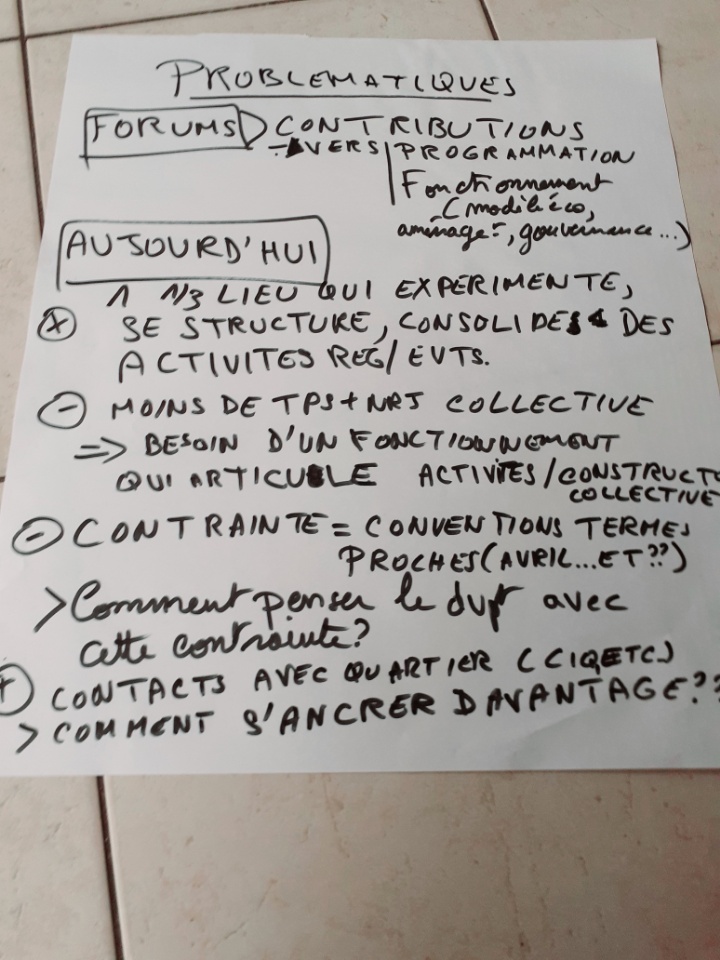 PROBLEMATIQUES
FORUMS > CONTRIBUTIONS
→ VERS | PROGRAMMATION
Fonctionnement
(modèl éco,
aménagt, gouvernance...)
AUJOURD'HUI
1 1/3 LIEU QUI EXPERIMENTE,
+ SE STRUCTURE, CONSOLIDE DES
ACTIVITES REG/EVTS.
- MOINS DE TPS + NRJ COLLECTIVE
=> BESOIN D'UN FONCTIONNEMENT
QUI ARTICULE ACTIVITES/CONSTRUCT
COLLECTIVE
- CONTRAINTE = CONVENTIONS TERMES
PROCHES (AVRIL...ET??)
> Comment penser le dvpt avec
cette contrainte?
+ CONTACTS AVEC QUARTIER (CIQ ETC)
> COMMENT S'ANCRER DAVANTAGE??